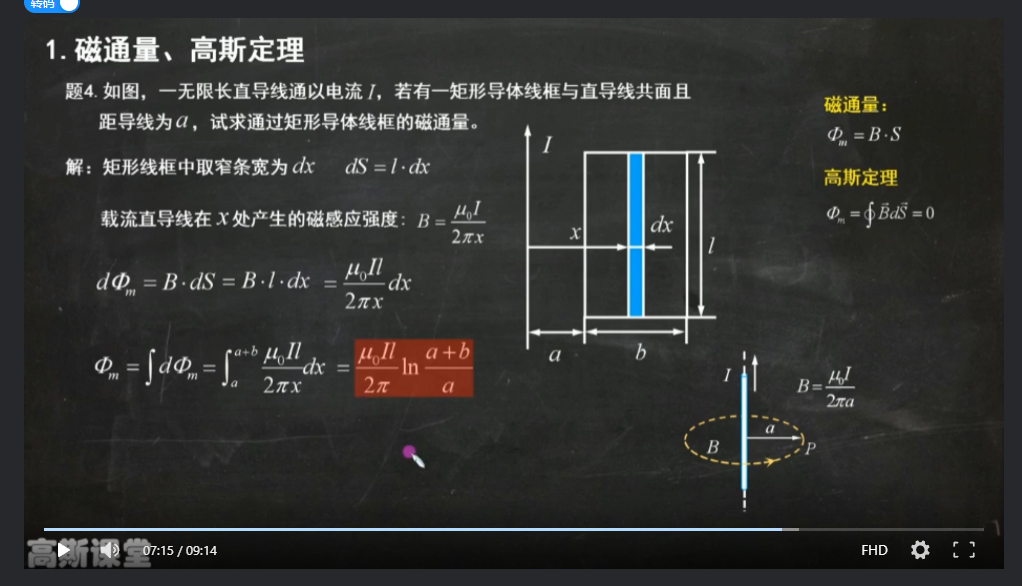 转码
1. 磁通量、高斯定理
题4. 如图，一无限长直导线通以电流 I，若有一矩形导体线框与直导线共面且
距导线为 a，试求通过矩形导体线框的磁通量。
解：矩形线框中取窄条宽为 dx dS = l · dx
载流直导线在 x 处产生的磁感应强度：B = μ₀I / 2πx
dΦₘ = B · dS = B · l · dx = μ₀Il / 2πx dx
Φₘ = ∫ dΦₘ = ∫ₐᵃ⁺ᵇ μ₀Il / 2πx dx = μ₀Il / 2π ln a+b / a
I
x
dx
l
a
b
磁通量：
Φₘ = B · S
高斯定理
Φₘ = ∮ B⃗dS⃗ = 0
I
B = μ₀I / 2πa
a
B
P
高斯课堂
07:15 / 09:14
FHD